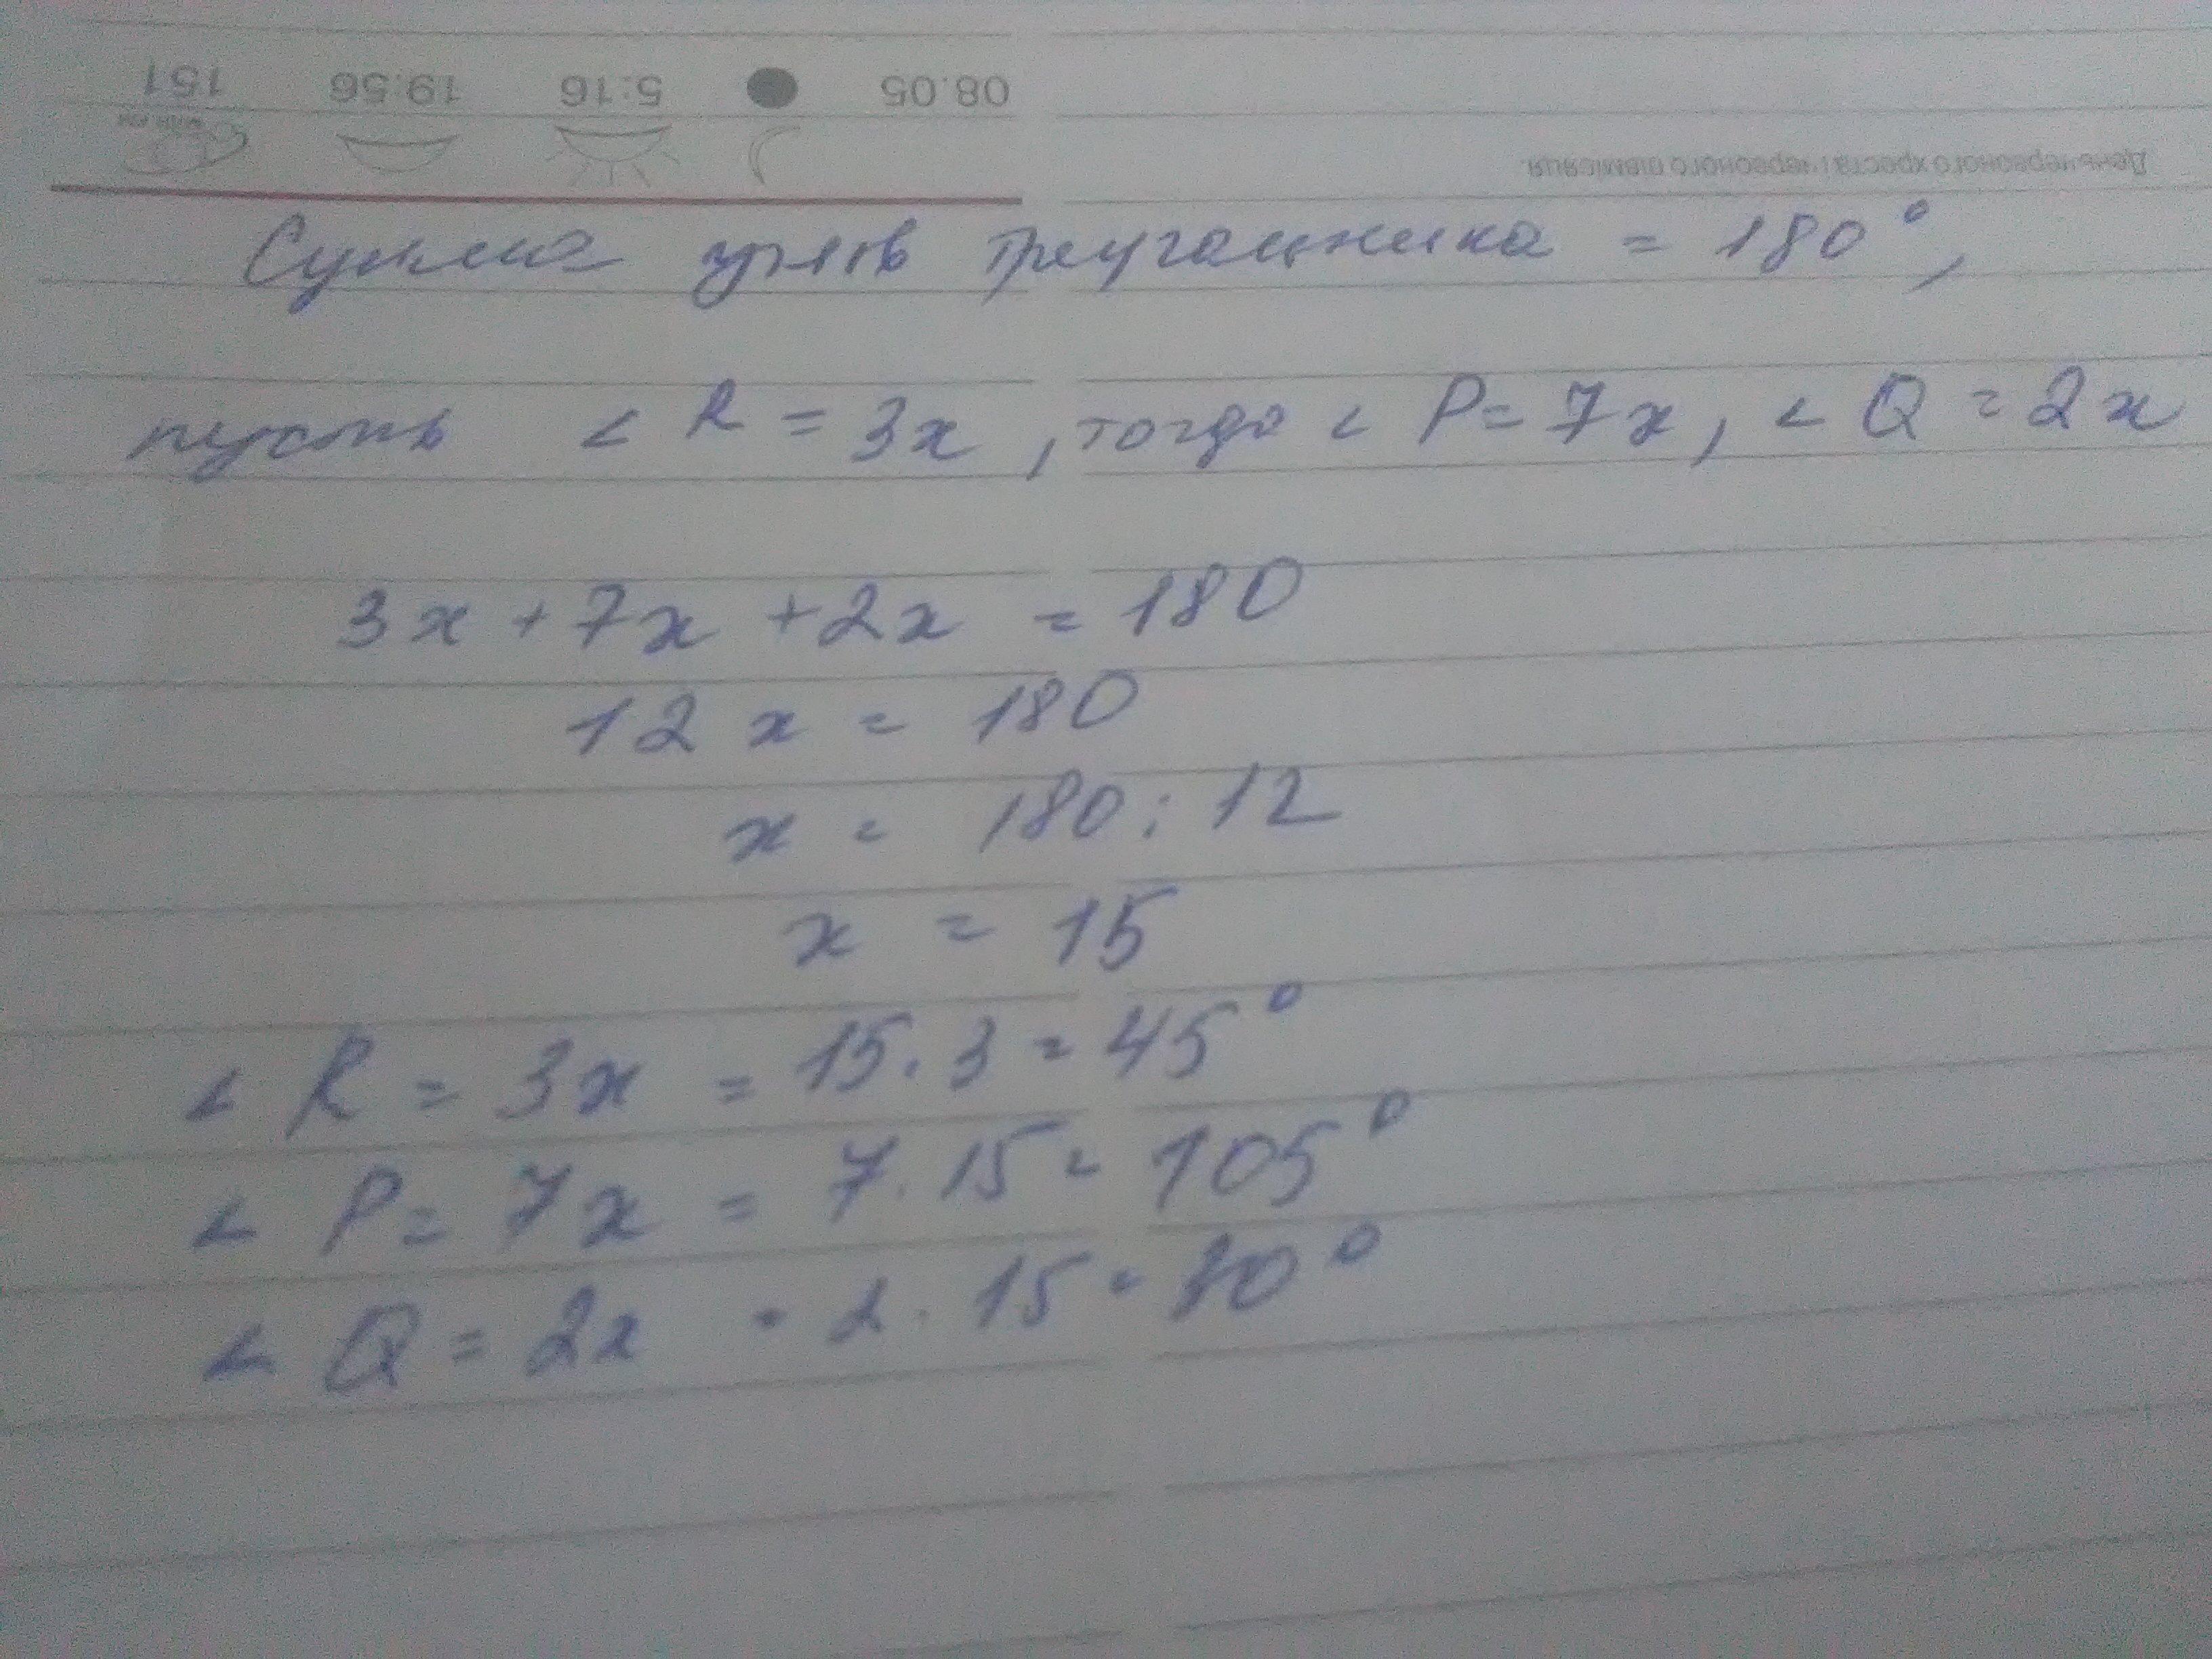 08.05 5:16 19:56 151
День червоного хреста і червоного півмісяця.
Сумма углов треугольника = 180°,
пусть < R = 3x, тогда < P = 7x, < Q = 2x
3x + 7x + 2x = 180
12 x = 180
x = 180 : 12
x = 15
< R = 3x = 15 · 3 = 45°
< P = 7x = 7 · 15 = 105°
< Q = 2x = 2 · 15 = 30°